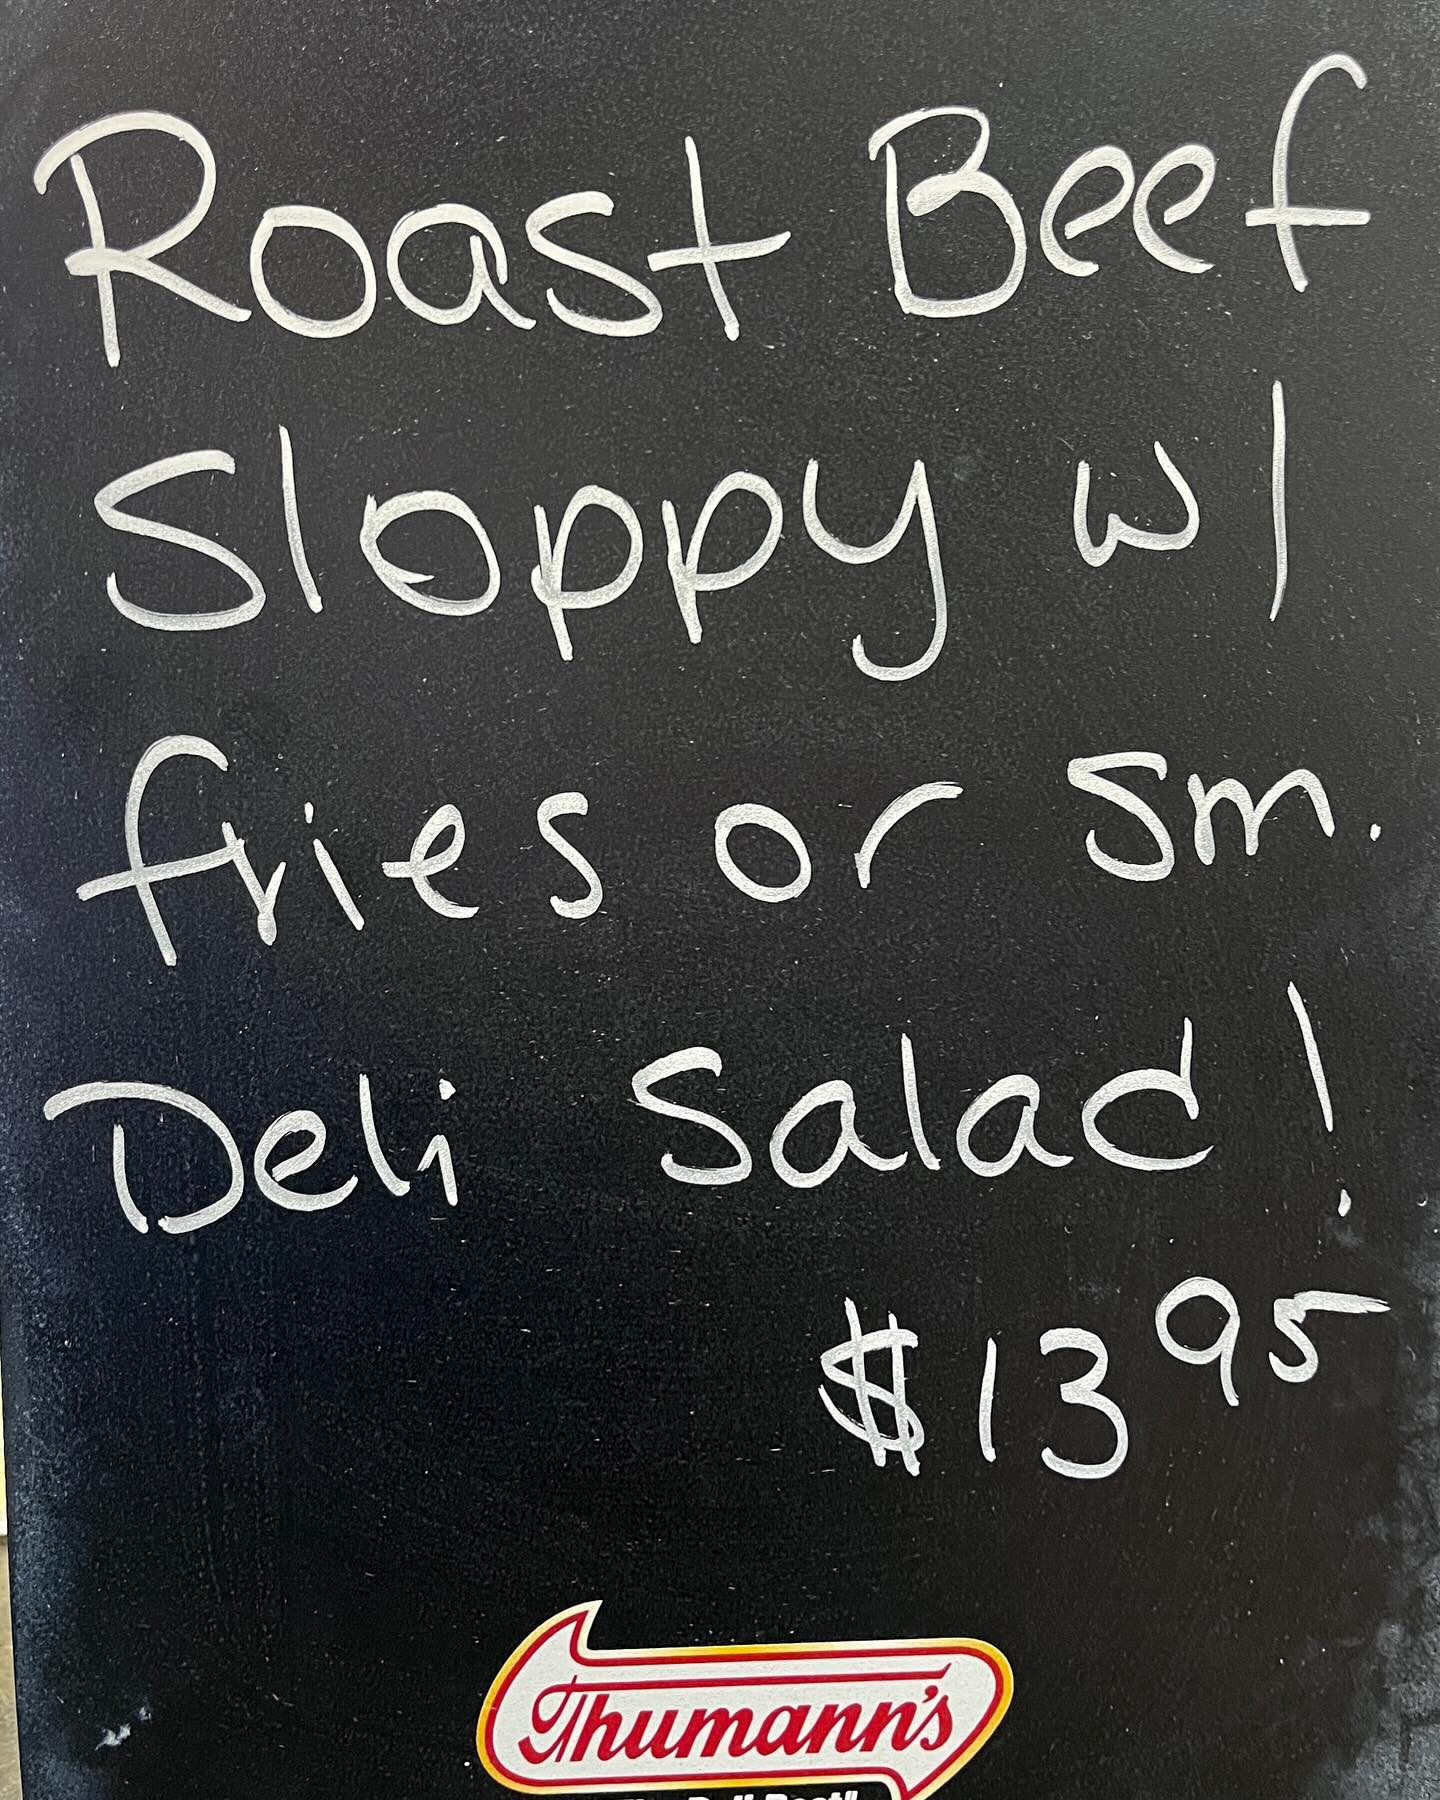 Roast Beef
Sloppy w/
fries or sm.
Deli Salad!
$13 95
Thumann's